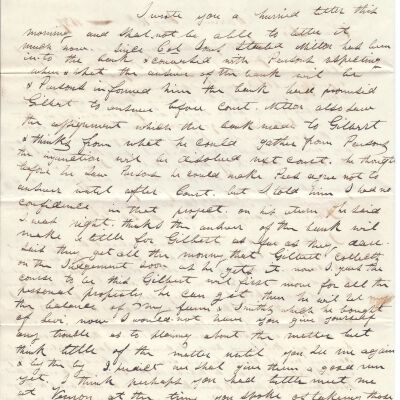 I wrote you a hurried letter this
morning and shall not be able to better it
much now. Since Col Sons Started Miller has been
into the bank & conversed with Parsons respecting
when & what the answer of the bank will be
& Parsons informed him the bank had promised
Gilbert to answer before court. Miller also saw
the assignment which the bank made to Gilbert
& thinks from what he could gather from Parsons
the injunction will be desolved next court. he thought
before he saw Parsons he could make Pees agree not to
answer until after Court. but I told him I had no
confidence in that project. on his return he said
I was right. thinks the answer of the bank will
make little for Gilbert as far as they dare.
Said they get all the money that Gilbert collects
on the Judgement soon as he gets it. now I guess the
course to be this Gilbert will first move for all the
personal property he can get then he will
the balance of farm & which he bought
of Levi. now I would not have you give yourself
any trouble as to planing about the matter but
think little of the matter until you see me again
& by the by I predict we shall give them a good run
yet. I think perhaps you had better meet me
at Vernon at the time you spoke of taking those